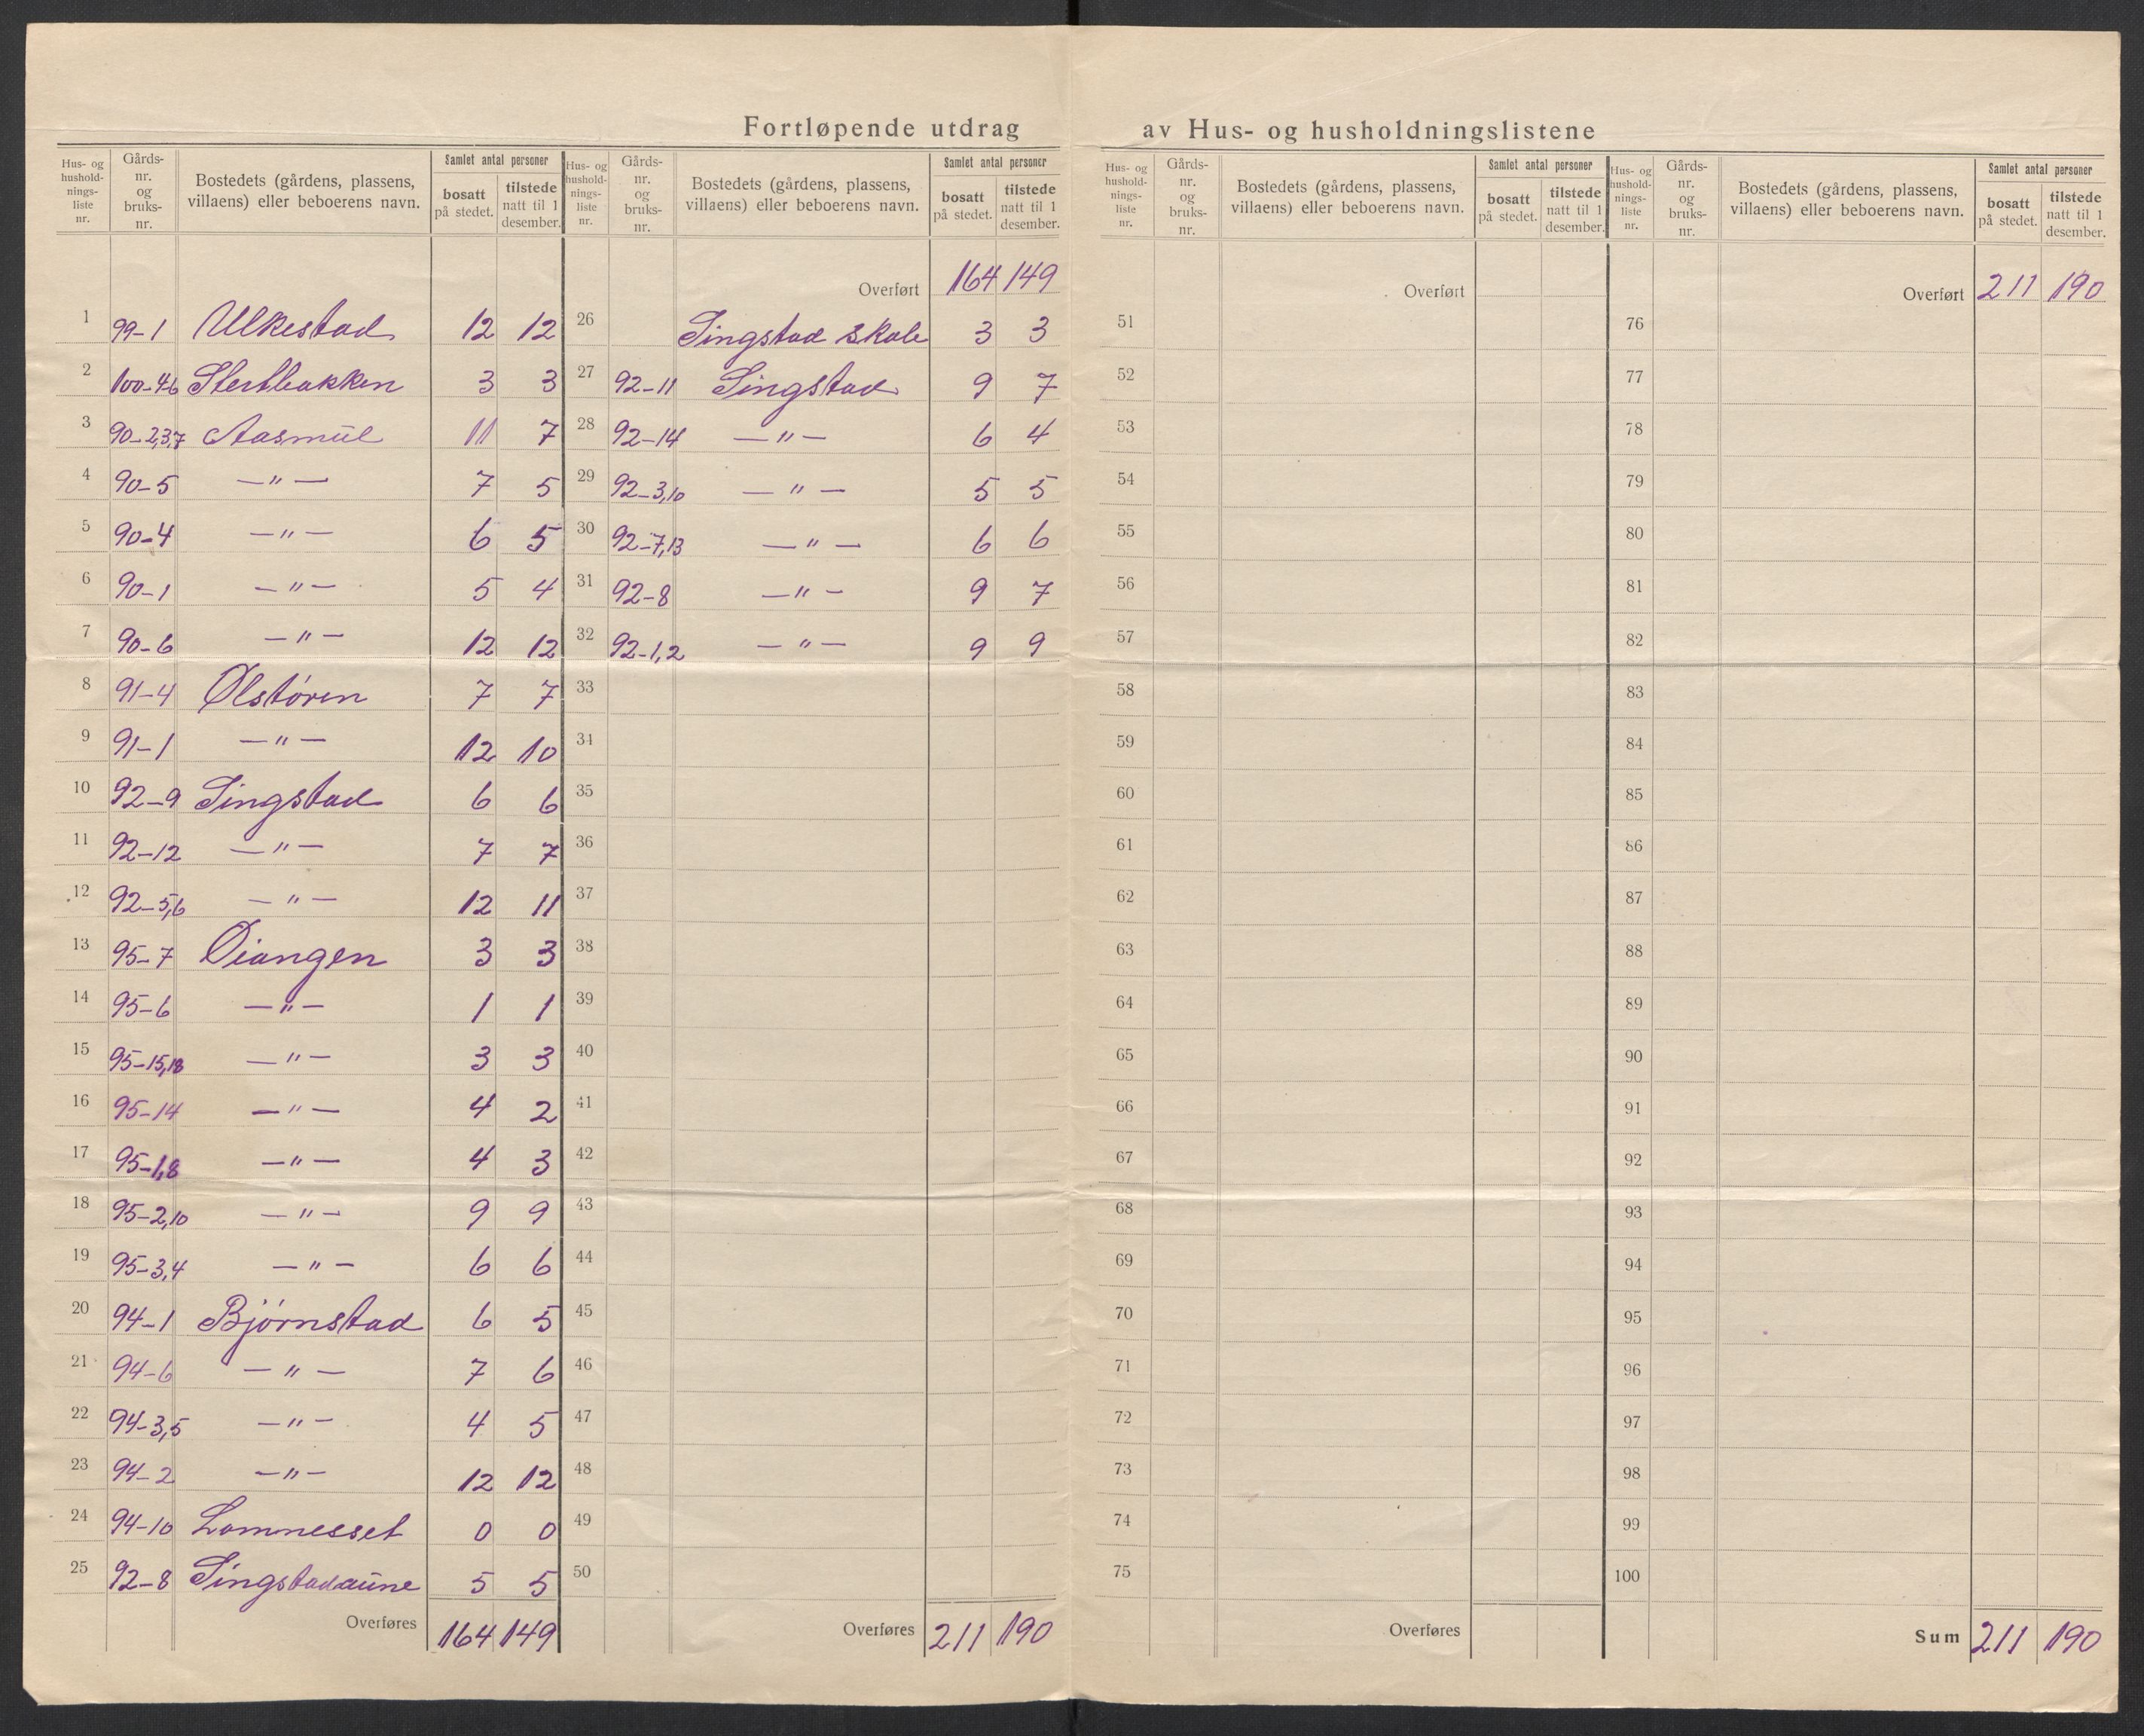 Fortløpende utdrag av Hus- og husholdningslistene
Hus- og husholdnings- liste nr. Gårds- nr. og bruks- nr. Bostedets (gårdens, plassens, villaens) eller beboerens navn. Samlet antal personer bosatt på stedet. tilstede natt til 1 desember.
1 99-1 Ulkestad 12 12
2 100-4-6 Stertbakken 3 3
3 90-2,3,7 Aasmul 11 7
4 90-5 —"— 7 5
5 90-4 —"— 6 5
6 90-1 —"— 5 4
7 90-6 —"— 12 12
8 91-4 Ølstøren 7 7
9 91-1 —"— 12 10
10 92-9 Singstad 6 6
11 92-12 —"— 7 7
12 92-5,6 —"— 12 11
13 95-7 Øiangen 3 3
14 95-6 —"— 1 1
15 95-15,18 —"— 3 3
16 95-14 —"— 4 2
17 95-1,8 —"— 4 3
18 95-2,10 —"— 9 9
19 95-3,4 —"— 6 6
20 94-1 Bjørnstad 6 5
21 94-6 —"— 7 6
22 94-3,5 —"— 4 5
23 94-2 —"— 12 12
24 94-10 Lomnesset 0 0
25 92-8 Singstadaune 5 5
Overføres 164 149
Hus- og husholdnings- liste nr. Gårds- nr. og bruks- nr. Bostedets (gårdens, plassens, villaens) eller beboerens navn. Samlet antal personer bosatt på stedet. tilstede natt til 1 desember.
Overført 164 149
26 Singstad skole 3 3
27 92-11 Singstad 9 7
28 92-14 —"— 6 4
29 92-3,10 —"— 5 5
30 92-7,13 —"— 6 6
31 92-8 —"— 9 7
32 92-1,2 —"— 9 9
33
34
35
36
37
38
39
40
41
42
43
44
45
46
47
48
49
50
Overføres 211 190
Hus- og hushold- nings- liste nr. Gårds- nr. og bruks- nr. Bostedets (gårdens, plassens, villaens) eller beboerens navn. Samlet antal personer bosatt på stedet. tilstede natt til 1 desember.
Overført
51
52
53
54
55
56
57
58
59
60
61
62
63
64
65
66
67
68
69
70
71
72
73
74
75
Overføres
Hus- og hushold- nings- liste nr. Gårds- nr. og bruks- nr. Bostedets (gårdens, plassens, villaens) eller beboerens navn. Samlet antal personer bosatt på stedet. tilstede natt til 1 desember.
Overført 211 190
76
77
78
79
80
81
82
83
84
85
86
87
88
89
90
91
92
93
94
95
96
97
98
99
100
Sum 211 190